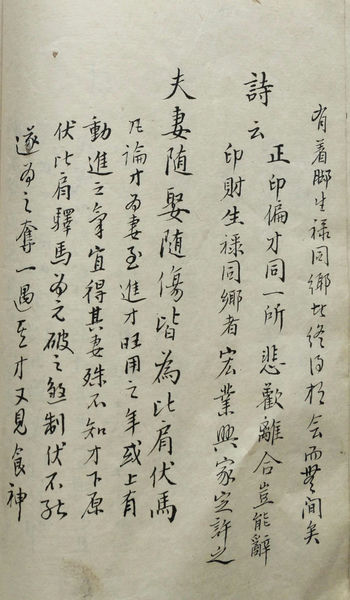 有着脚生祿同鄉此終得於会而無间矣
詩云
正印偏才同一所 悲歡離合豈能辭
印財生祿同鄉者 宏業興家定許之
夫妻随娶随傷皆為比肩伏馬
凡論才為妻至進才旺用之年或上有
動進之氣宜得其妻殊不知才下原
伏比肩驛馬為元破之煞制伏不能
遂為之奪一遇至才又見食神